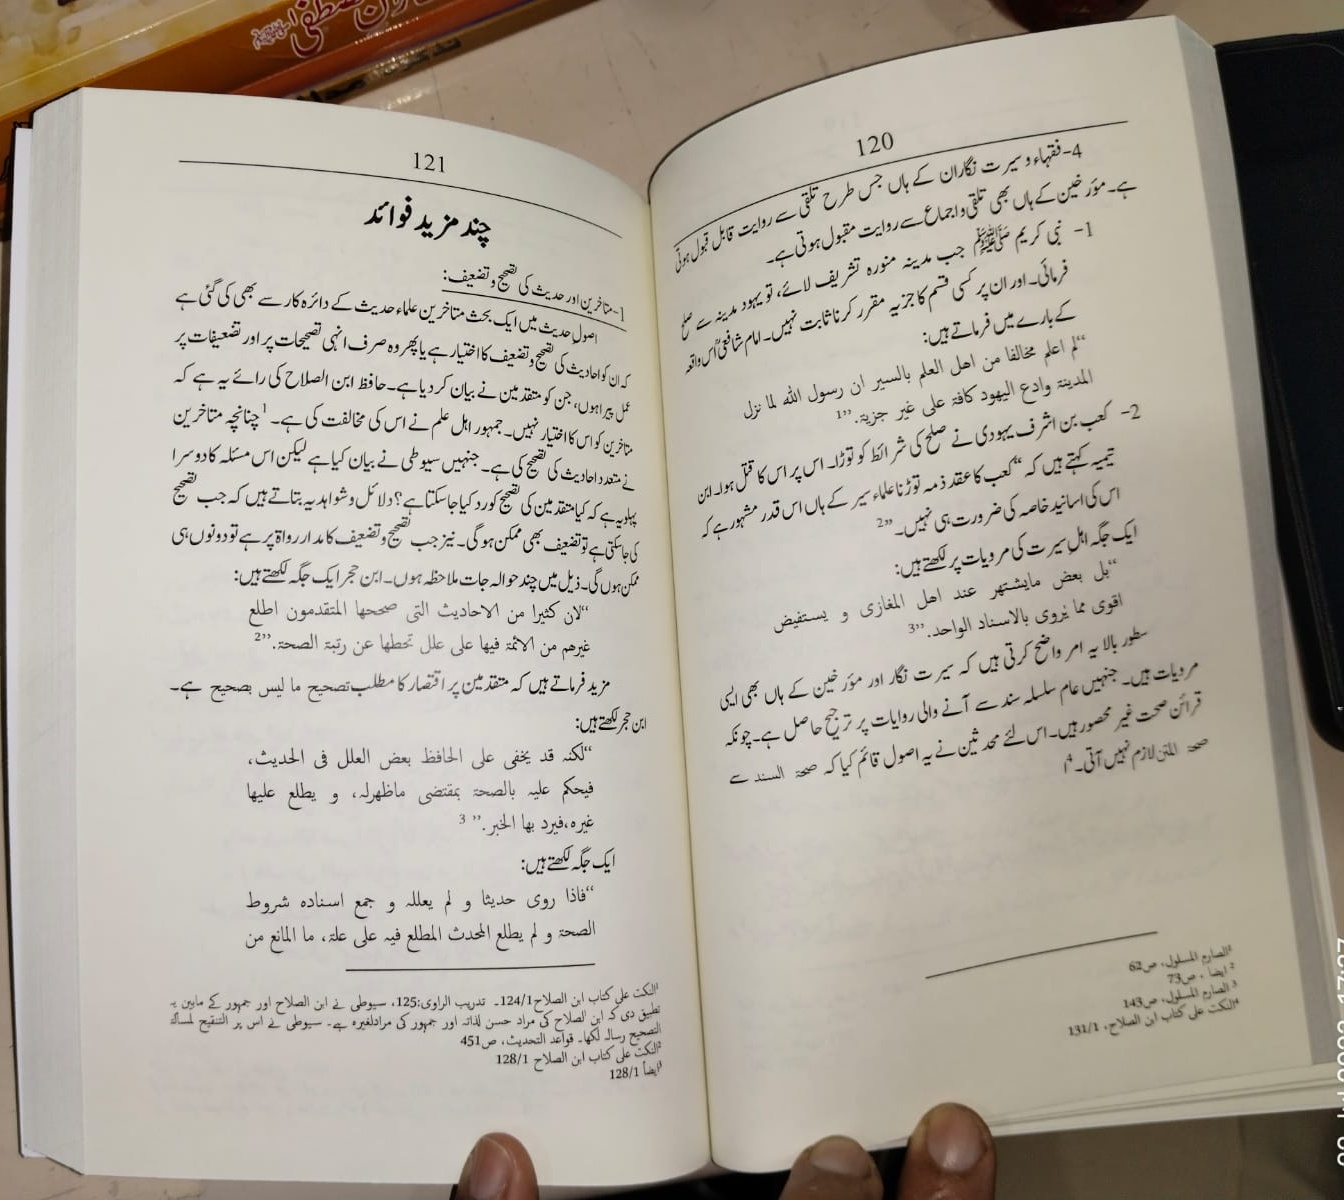 120
4-فقہاء و سیرت نگاران کے ہاں جس طرح تلقی سے روایت قابل قبول ہوتی
ہے۔ مؤرخین کے ہاں بھی تلقی و اجماع سے روایت مقبول ہوتی ہے۔
1- نبی کریم ﷺ جب مدینہ منورہ تشریف لائے، تو یہود مدینہ سے صلح
فرمائی۔ اور ان پر کسی قسم کا جزیہ مقرر کرنا ثابت نہیں۔ امام شافعیؒ اس واقعہ
کے بارے میں فرماتے ہیں:
“لم اعلم مخالفا من اهل العلم بالسیر ان رسول الله لما نزل
المدینة وادع الیهود کافة علی غیر جزیة.”1
2- کعب بن اشرف یہودی نے صلح کی شرائط کو توڑا۔ اس پر اس کا قتل ہوا۔ ابن
تیمیہ کہتے ہیں کہ “کعب کا عقد ذمہ توڑنا علماء سیر کے ہاں اس قدر مشہور ہے کہ
اس کی اسانید خاصہ کی ضرورت ہی نہیں۔”2
ایک جگہ اہلِ سیرت کی مرویات پر لکھتے ہیں:
“بل بعض مایشتهر عند اهل المغازی و یستفیض
اقوی مما یُروی بالاسناد الواحد.”3
سطور بالا یہ امر واضح کرتی ہیں کہ سیرت نگار اور مؤرخین کے ہاں بھی ایسی
مرویات ہیں۔ جنہیں عام سلسلہ سند سے آنے والی روایات پر ترجیح حاصل ہے۔ چونکہ
قرائن صحت غیر محصور ہیں۔ اس لئے محدثین نے یہ اصول قائم کیا کہ صحة السند سے
صحة المتن لازم نہیں آتی۔4
1الصارم المسلول، ص62
2 ایضا ، ص73
3 الصارم المسلول، ص143
4النکت علی کتاب ابن الصلاح، 131/1
121
چند مزید فوائد
1-متاخرین اور حدیث کی تصحیح و تضعیف:
اصولِ حدیث میں ایک بحث متاخرین علماء حدیث کے دائرہ کار سے بھی کی گئی ہے
کہ ان کو احادیث کی تصحیح و تضعیف کا اختیار ہے یا پھر وہ صرف انہی تصحیحات پر اور تضعیفات پر
عمل پیرا ہوں، جن کو متقدمین نے بیان کر دیا ہے۔ حافظ ابن الصلاح کی رائے یہ ہے کہ
متاخرین کو اس کا اختیار نہیں۔ جمہور اہل علم نے اس کی مخالفت کی ہے۔1 چنانچہ متاخرین
نے متعدد احادیث کی تصحیح کی ہے۔ جنہیں سیوطی نے بیان کیا ہے لیکن اس مسئلہ کا دوسرا
پہلو یہ ہے کہ کیا متقدمین کی تصحیح کو رد کیا جا سکتا ہے؟ دلائل و شواہد یہ بتاتے ہیں کہ جب تصحیح
کی جا سکتی ہے تو تضعیف بھی ممکن ہوگی۔ نیز جب تصحیح و تضعیف کا مدار رواة پر ہے تو دونوں ہی
ممکن ہوں گی۔ ذیل میں چند حوالہ جات ملاحظہ ہوں۔ ابن حجر ایک جگہ لکھتے ہیں:
“لان کثیرا من الاحادیث التی صححها المتقدمون اطلع
غیرهم من الائمة فیها علی علل تحطها عن رتبة الصحة.”2
مزید فرماتے ہیں کہ متقدمین پر اقتصار کا مطلب تصحیح ما لیس بصحیح ہے۔
ابن حجر لکھتے ہیں:
“لکنه قد یخفی علی الحافظ بعض العلل فی الحدیث،
فیحکم علیه بالصحة بمقتضی ماظهرله، و یطلع علیها
غیره،فیرد بها الخبر.” 3
ایک جگہ لکھتے ہیں:
“فاذا روی حدیثا و لم یعلله و جمع اسناده شروط
الصحة و لم یطلع المحدث المطلع فیه علی علة، ما المانع من
1النکت علی کتاب ابن الصلاح124/1۔ تدریب الراوی:125، سیوطی نے ابن الصلاح اور جمہور کے مابین یہ
تطبیق دی کہ ابن الصلاح کی مراد حسن لذاتہ اور جمہور کی مرادلغیرہ ہے۔ سیوطی نے اس پر التنقیح لمسالة
التصحیح رسالہ لکھا۔ قواعد التحدیث، ص451
2النکت علی کتاب ابن الصلاح 128/1
3ایضاً 128/1